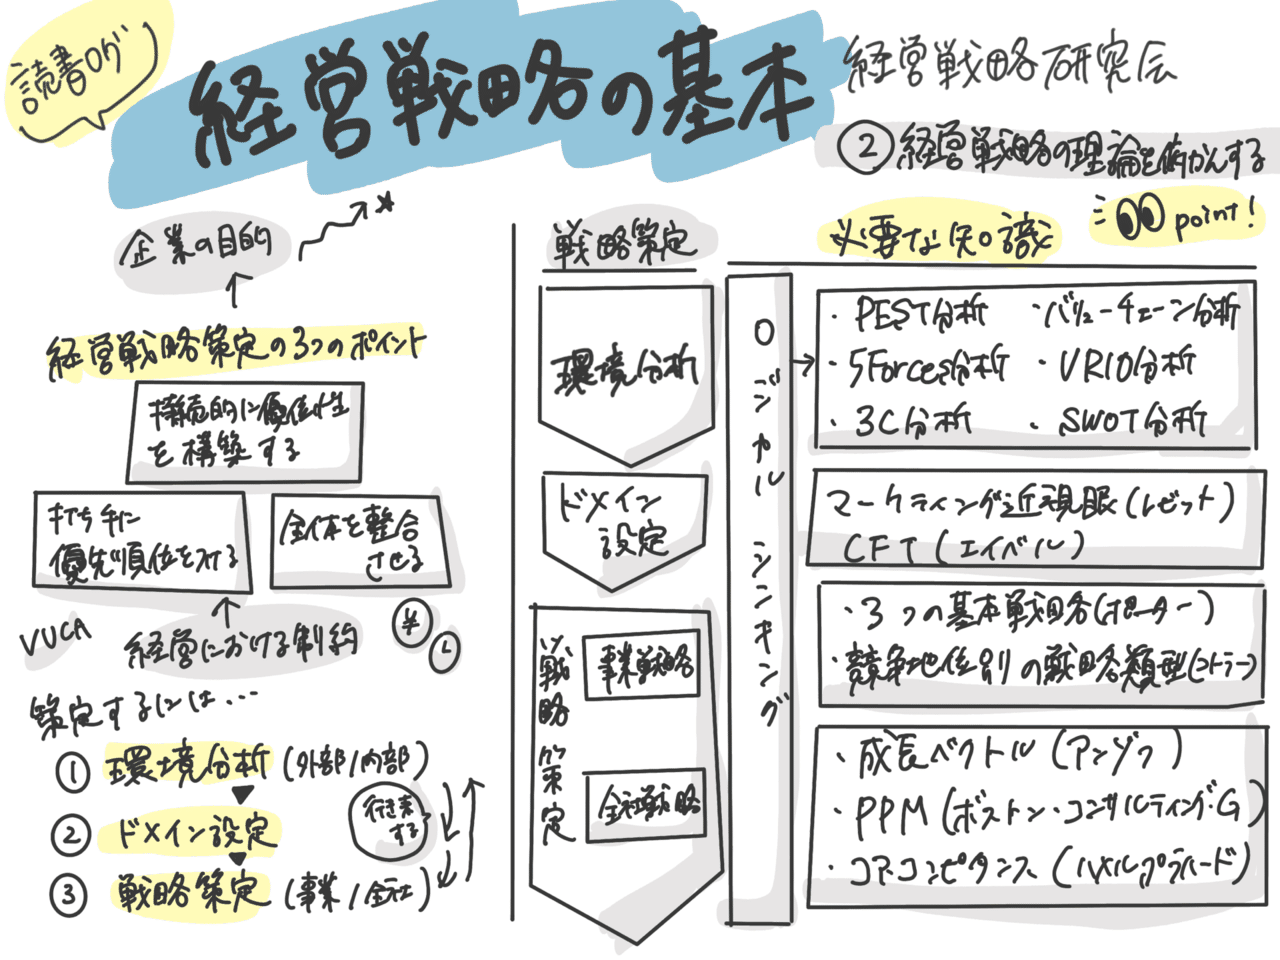 読書ログ
経営戦略の基本
経営戦略研究会
② 経営戦略の理論を俯かんする
point!
企業の目的
経営戦略策定の3つのポイント
持続的に優位性
を構築する
打ち手に
優先順位をつける
全体を整合
させる
VUCA
経営における制約
¥
策定するには…
① 環境分析 (外部/内部)
② ドメイン設定
③ 戦略策定 (事業/全社)
行き来
する
戦略策定
環境分析
ドメイン
設定
戦略策定
事業戦略
全社戦略
ロジカルシンキング
必要な知識
・PEST分析 ・バリューチェーン分析
・5Forces分析 ・VRIO分析
・3C分析 ・SWOT分析
マーケティング近視眼(レビット)
CFT(エイベル)
・3つの基本戦略(ポーター)
・競争地位別の戦略類型(コトラー)
・成長ベクトル(アンゾフ)
・PPM(ボストン・コンサルティング・G)
・コア・コンピタンス(ハメル,プラハード)